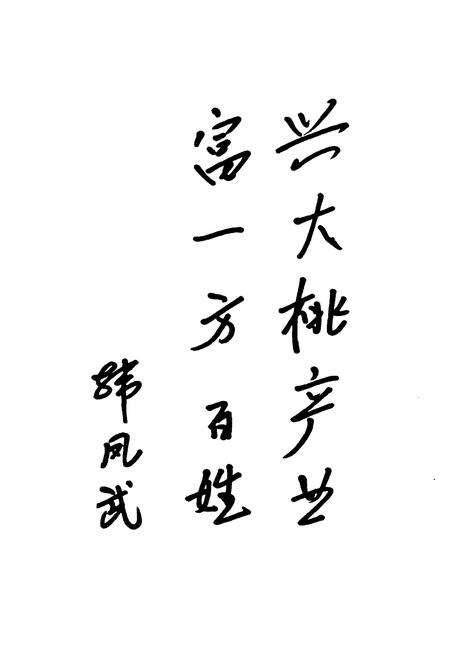 兴大桃产业
富一方百姓
韩凤武